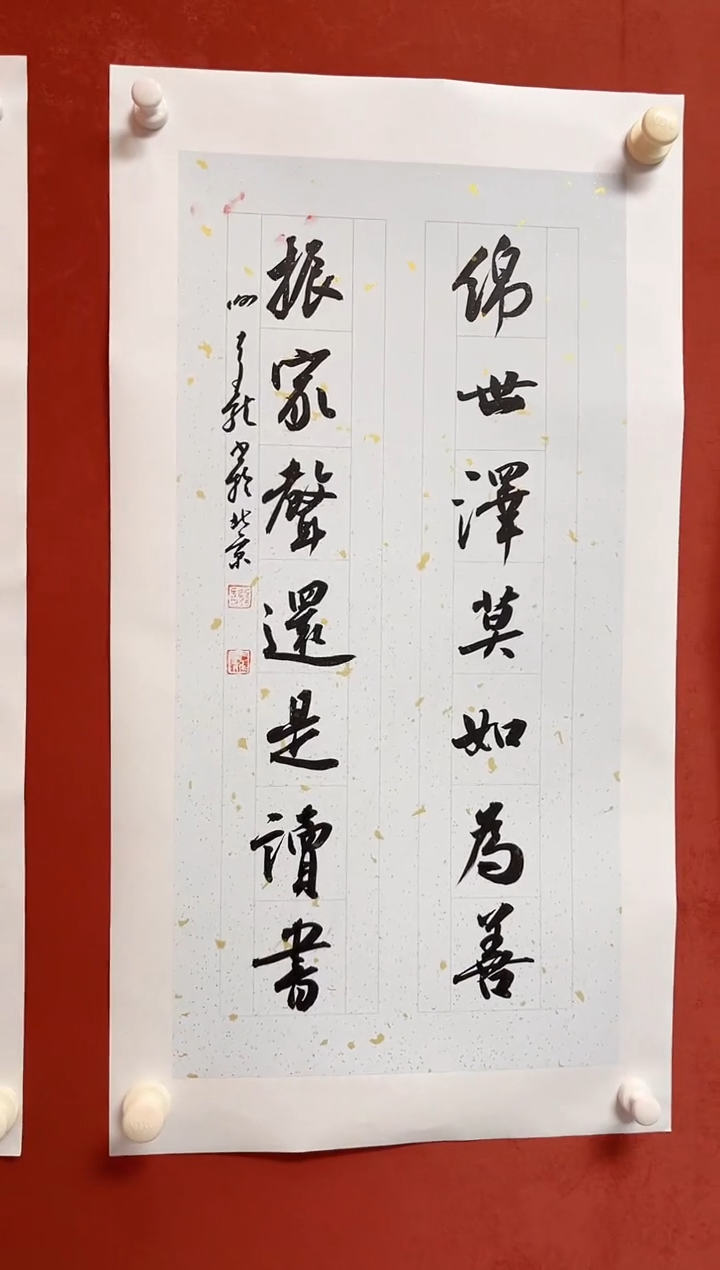 綿世澤莫如為善
振家聲還是讀書
書於北京